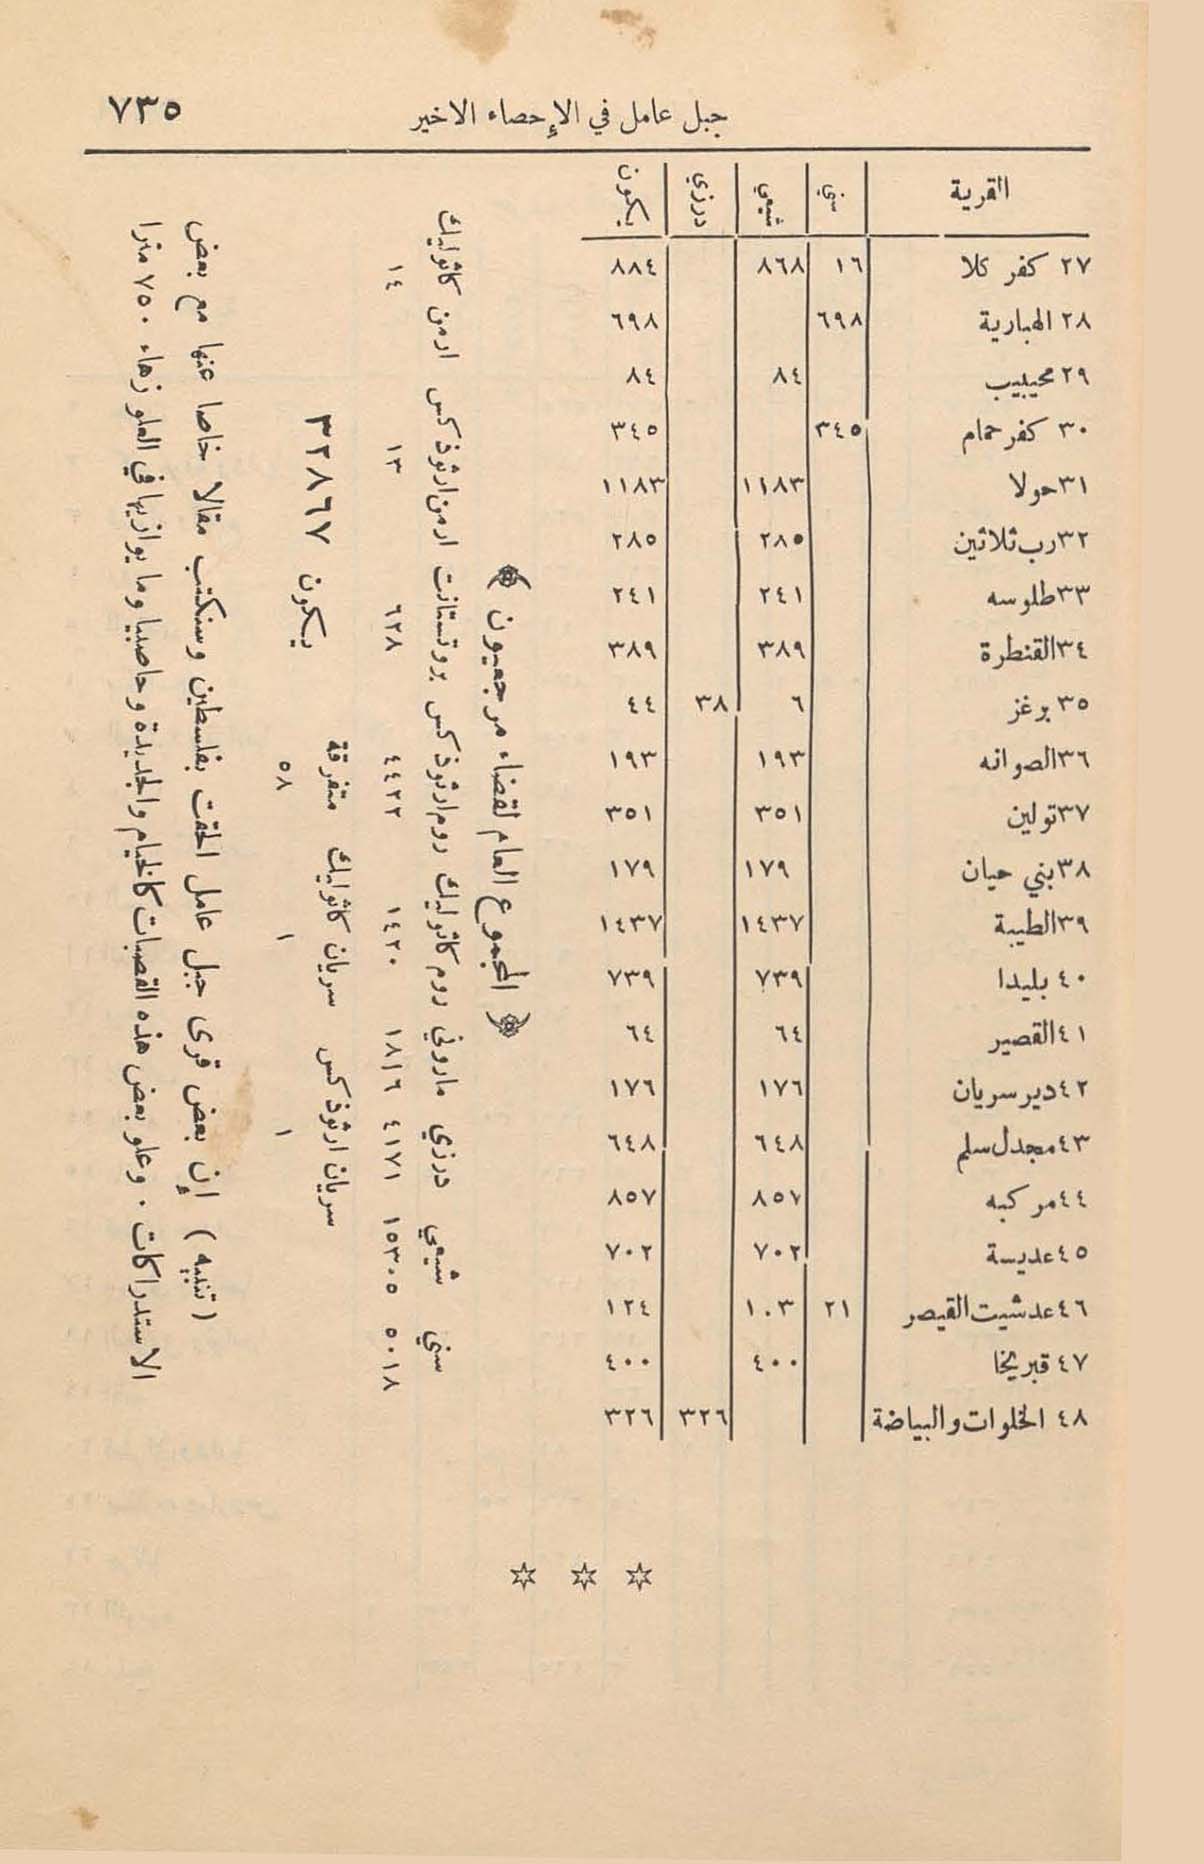 جبل عامل في الإحصاء الاخير ٧٣٥
القرية سني شيعي درزي يكون
٢٧ كفر كلا ١٦ ٨٦٨ ٨٨٤
٢٨ الهبارية ٦٩٨ ٦٩٨
٢٩ محيبيب ٨٤ ٨٤
٣٠ كفر حمام ٣٤٥ ٣٤٥
٣١ حولا ١١٨٣ ١١٨٣
٣٢ رب ثلاثين ٢٨٥ ٢٨٥
٣٣ طلوسه ٢٤١ ٢٤١
٣٤ القنطرة ٣٨٩ ٣٨٩
٣٥ برغز ٦ ٣٨ ٤٤
٣٦ الصوانه ١٩٣ ١٩٣
٣٧ تولين ٣٥١ ٣٥١
٣٨ بني حيان ١٧٩ ١٧٩
٣٩ الطيبة ١٤٣٧ ١٤٣٧
٤٠ بليدا ٧٣٩ ٧٣٩
٤١ القصير ٦٤ ٦٤
٤٢ دير سريان ١٧٦ ١٧٦
٤٣ مجدل سلم ٦٤٨ ٦٤٨
٤٤ مركبه ٨٥٧ ٨٥٧
٤٥ عديسة ٧٠٢ ٧٠٢
٤٦ عدشيت القيصر ٢١ ١٠٣ ١٢٤
٤٧ قبريخا ٤٠٠ ٤٠٠
٤٨ الخلوات والبياضة ٣٢٦ ٣٢٦
﴿ المجموع العام لقضاء مرجعيون ﴾
سني شيعي درزي ماروني روم كاثوليك روم ارثوذكس بروتستانت ارمن ارثوذكس ارمن كاثوليك
٥٠١٨ ١٥٣٠٥ ٤١٧١ ١٨١٦ ١٤٢٠ ٤٤٢٢ ٦٢٨ ١٣ ١٤
سريان ارثوذكس سريان كاثوليك متفرقة يكون ٣٢٨٦٧
١ ١ ٥٨
( تنبيه ) إن بعض قرى جبل عامل الحقت بفلسطين وسنكتب مقالا خاصا عنها مع بعض
الاستدراكات . وعلو بعض هذه القصبات كالخيام والجديدة وحاصبيا وما يوازيها في العلو زهاء ٧٥٠ مترا